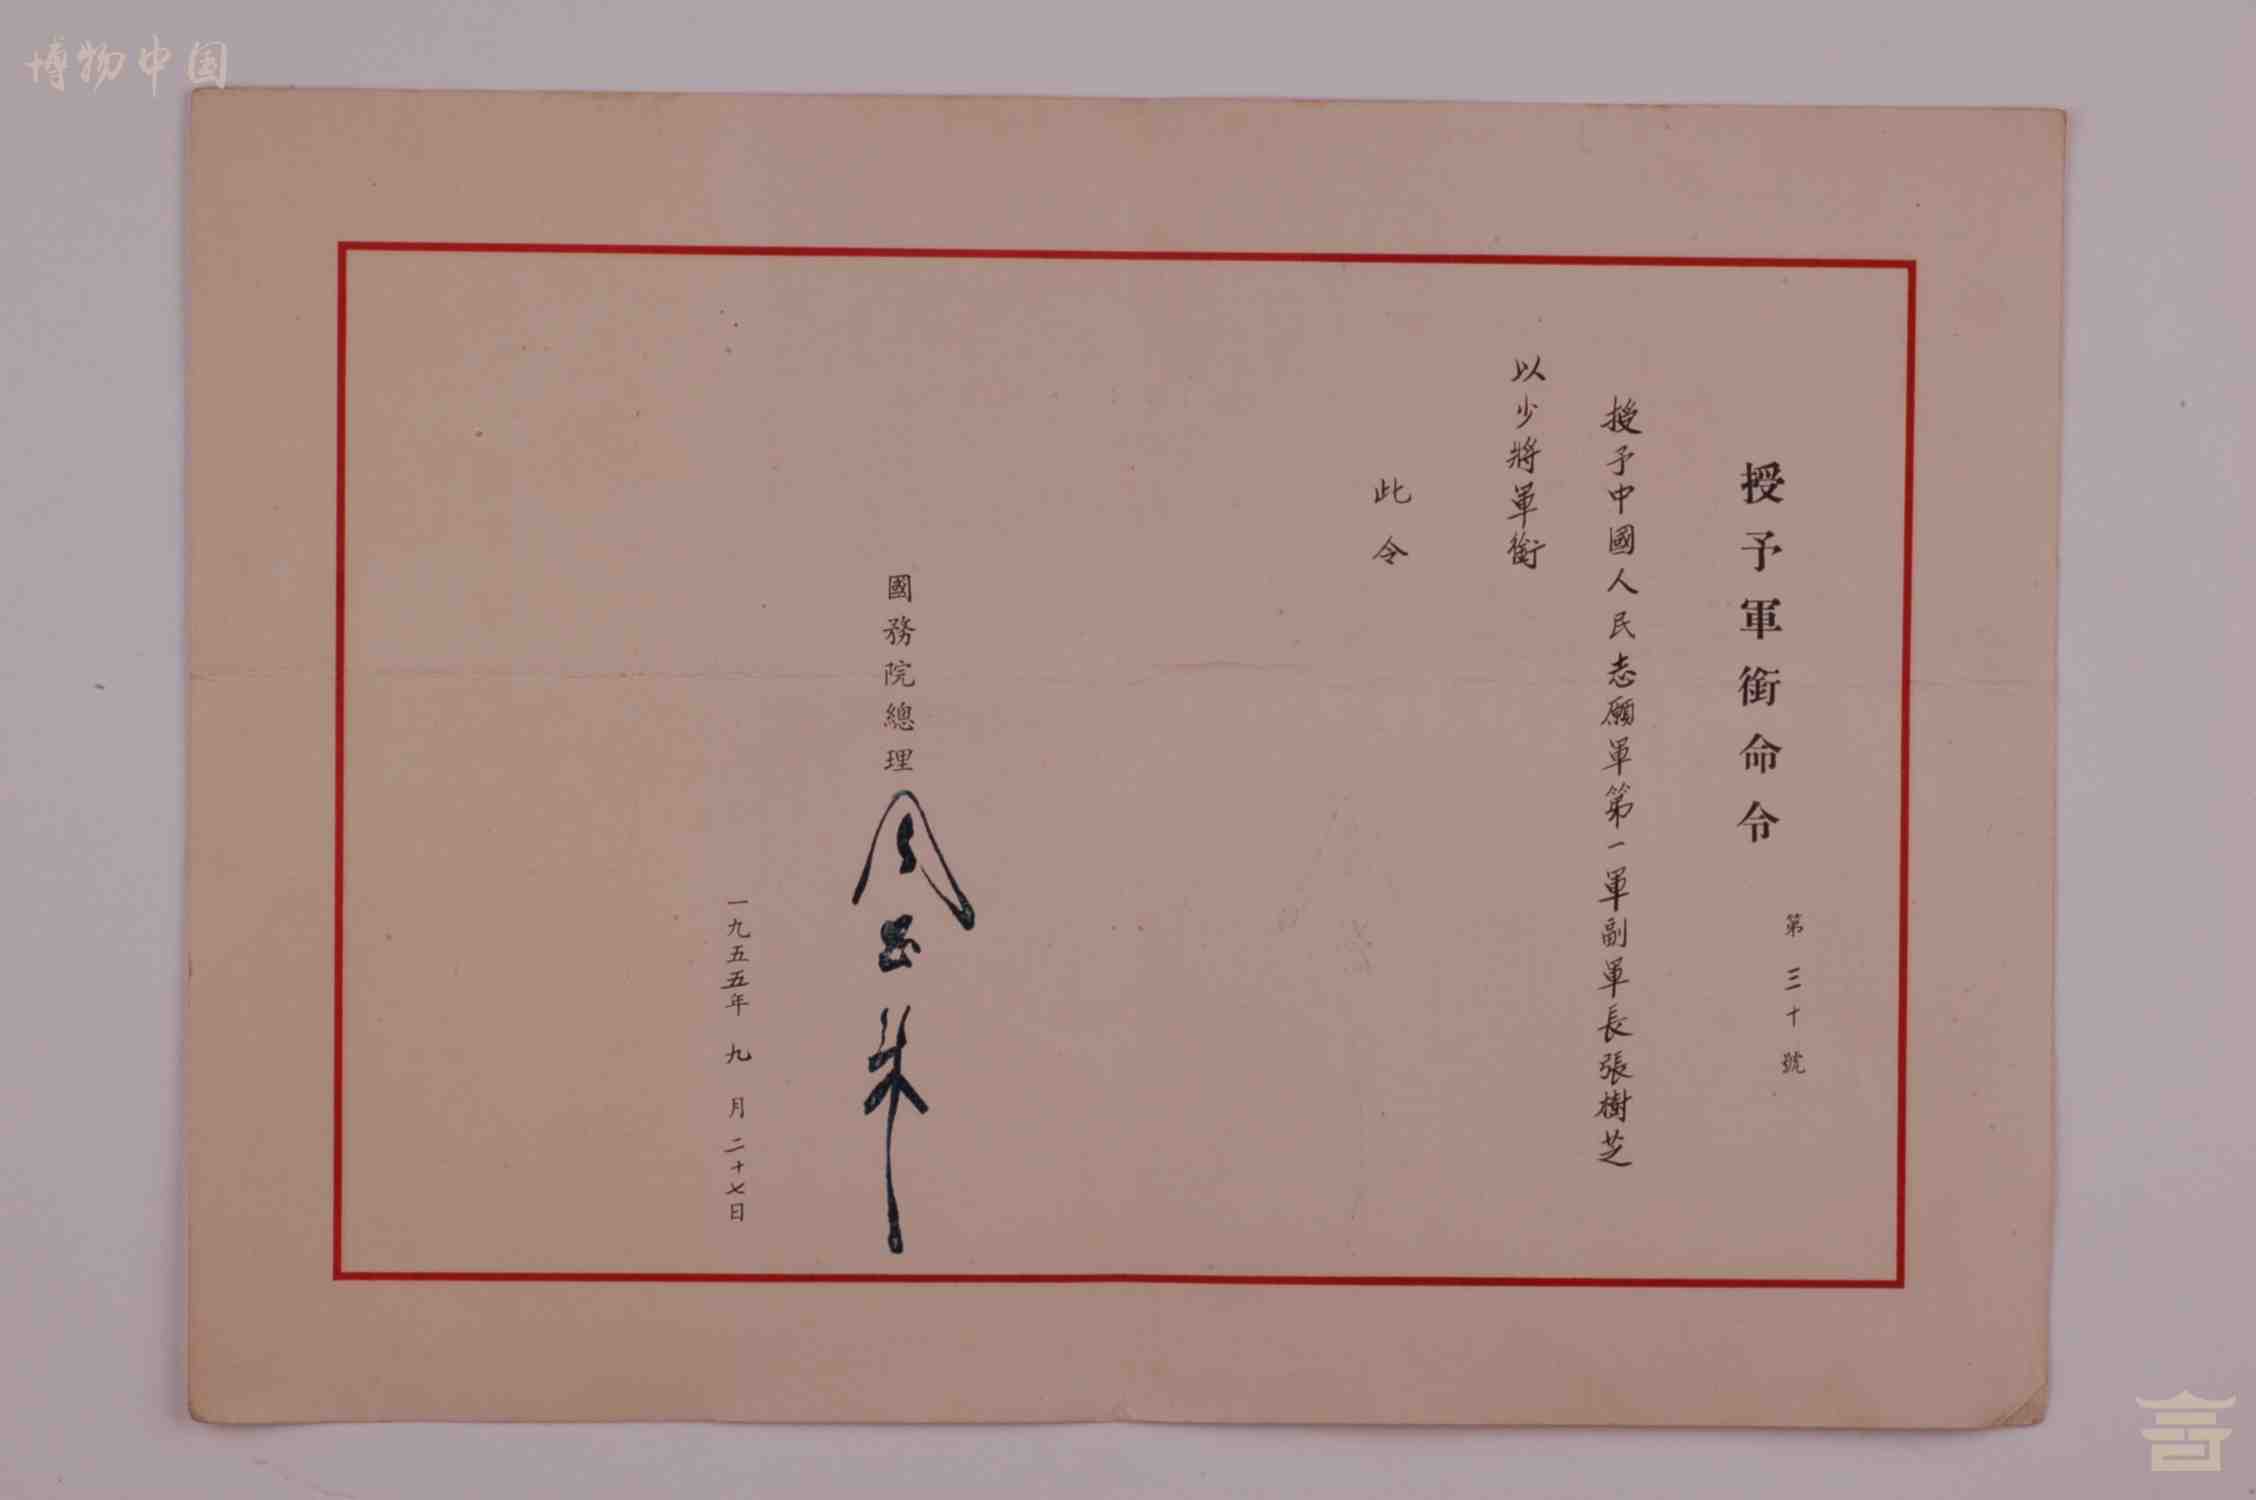 博物中国
授予軍銜命令
第三十號
授予中國人民志願軍第一軍副軍長張樹芝
以少將軍銜
此令
國務院總理 周恩来
一九五五年九月二十七日